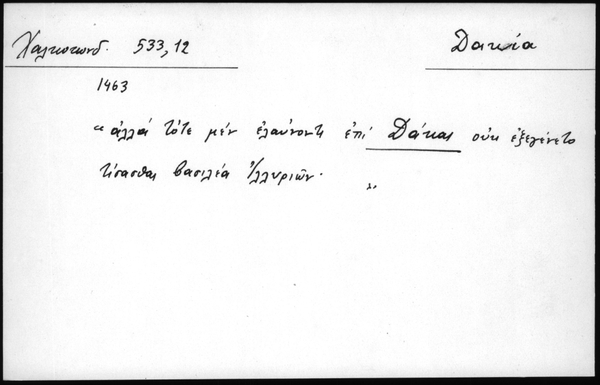 Χαλκοκονδ. 533,12
Δακία
1463
“ἀλλά τότε μέν ἐλαύνοντι ἐπί Δάκας οὐκ ἐξεγένετο
τίσασθαι βασιλέα Ἰλλυριῶν. ”